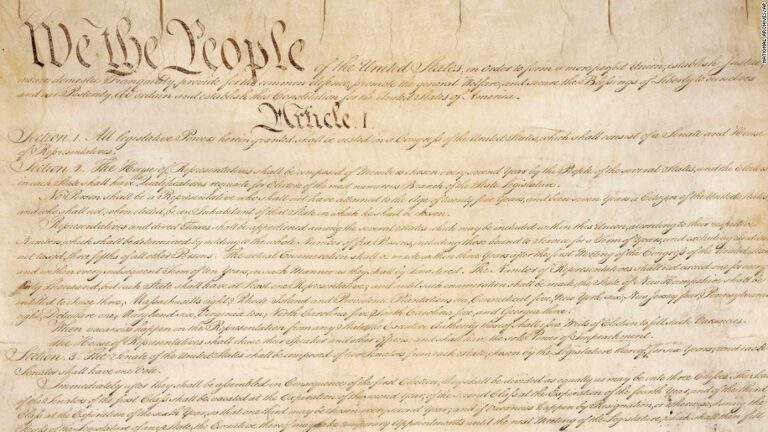 We the People of the United States, in Order to form a more perfect Union, establish Justice,
insure domestic Tranquility, provide for the common defence, promote the general Welfare, and secure the Blessings of Liberty to ourselves
and our Posterity, do ordain and establish this Constitution for the United States of America.
Article. I.
Section. 1. All legislative Powers herein granted shall be vested in a Congress of the United States, which shall consist of a Senate and House
of Representatives.
Section. 2. The House of Representatives shall be composed of Members chosen every second Year by the People of the several States, and the Electors
in each State shall have Qualifications requisite for Electors of the most numerous Branch of the State Legislature.
No Person shall be a Representative who shall not have attained to the Age of twenty five Years, and been seven Years a Citizen of the United States,
and who shall not, when elected, be an Inhabitant of that State in which he shall be chosen.
Representatives and direct Taxes shall be apportioned among the several States which may be included within this Union, according to their respective
Numbers, which shall be determined by adding to the whole Number of free Persons, including those bound to Service for a Term of Years, and excluding Indians
not taxed, three fifths of all other Persons. The actual Enumeration shall be made within three Years after the first Meeting of the Congress of the United States,
and within every subsequent Term of ten Years, in such Manner as they shall by Law direct. The Number of Representatives shall not exceed one for every
thirty Thousand, but each State shall have at Least one Representative; and until such enumeration shall be made, the State of New Hampshire shall be
entitled to chuse three, Massachusetts eight, Rhode Island and Providence Plantations one, Connecticut five, New York six, New Jersey four, Pennsylvania
eight, Delaware one, Maryland six, Virginia ten, North Carolina five, South Carolina five, and Georgia three.
When vacancies happen in the Representation from any State, the Executive Authority thereof shall issue Writs of Election to fill such Vacancies.
The House of Representatives shall chuse their Speaker and other Officers; and shall have the sole Power of Impeachment.
Section. 3. The Senate of the United States shall be composed of two Senators from each State, chosen by the Legislature thereof, for six Years; and each
Senator shall have one Vote.
Immediately after they shall be assembled in Consequence of the first Election, they shall be divided as equally as may be into three Classes. The Seats
of the Senators of the first Class shall be vacated at the Expiration of the second Year, of the second Class at the Expiration of the fourth Year, and of the third
Class at the Expiration of the sixth Year, so that one third may be chosen every second Year; and if Vacancies happen by Resignation, or otherwise, during the
Recess of the Legislature of any State, the Executive thereof may make temporary Appointments until the next Meeting of the Legislature, which shall then fill
NATIONAL ARCHIVES/AP